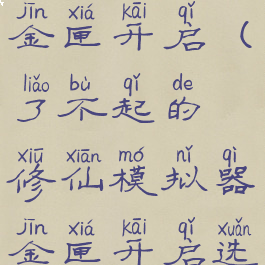 jīn xiá kāi qǐ
金匣开启（
liǎo bù qǐ de
了不起的
xiū xiān mó nǐ qì
修仙模拟器
jīn xiá kāi qǐ xuǎn
金匣开启选